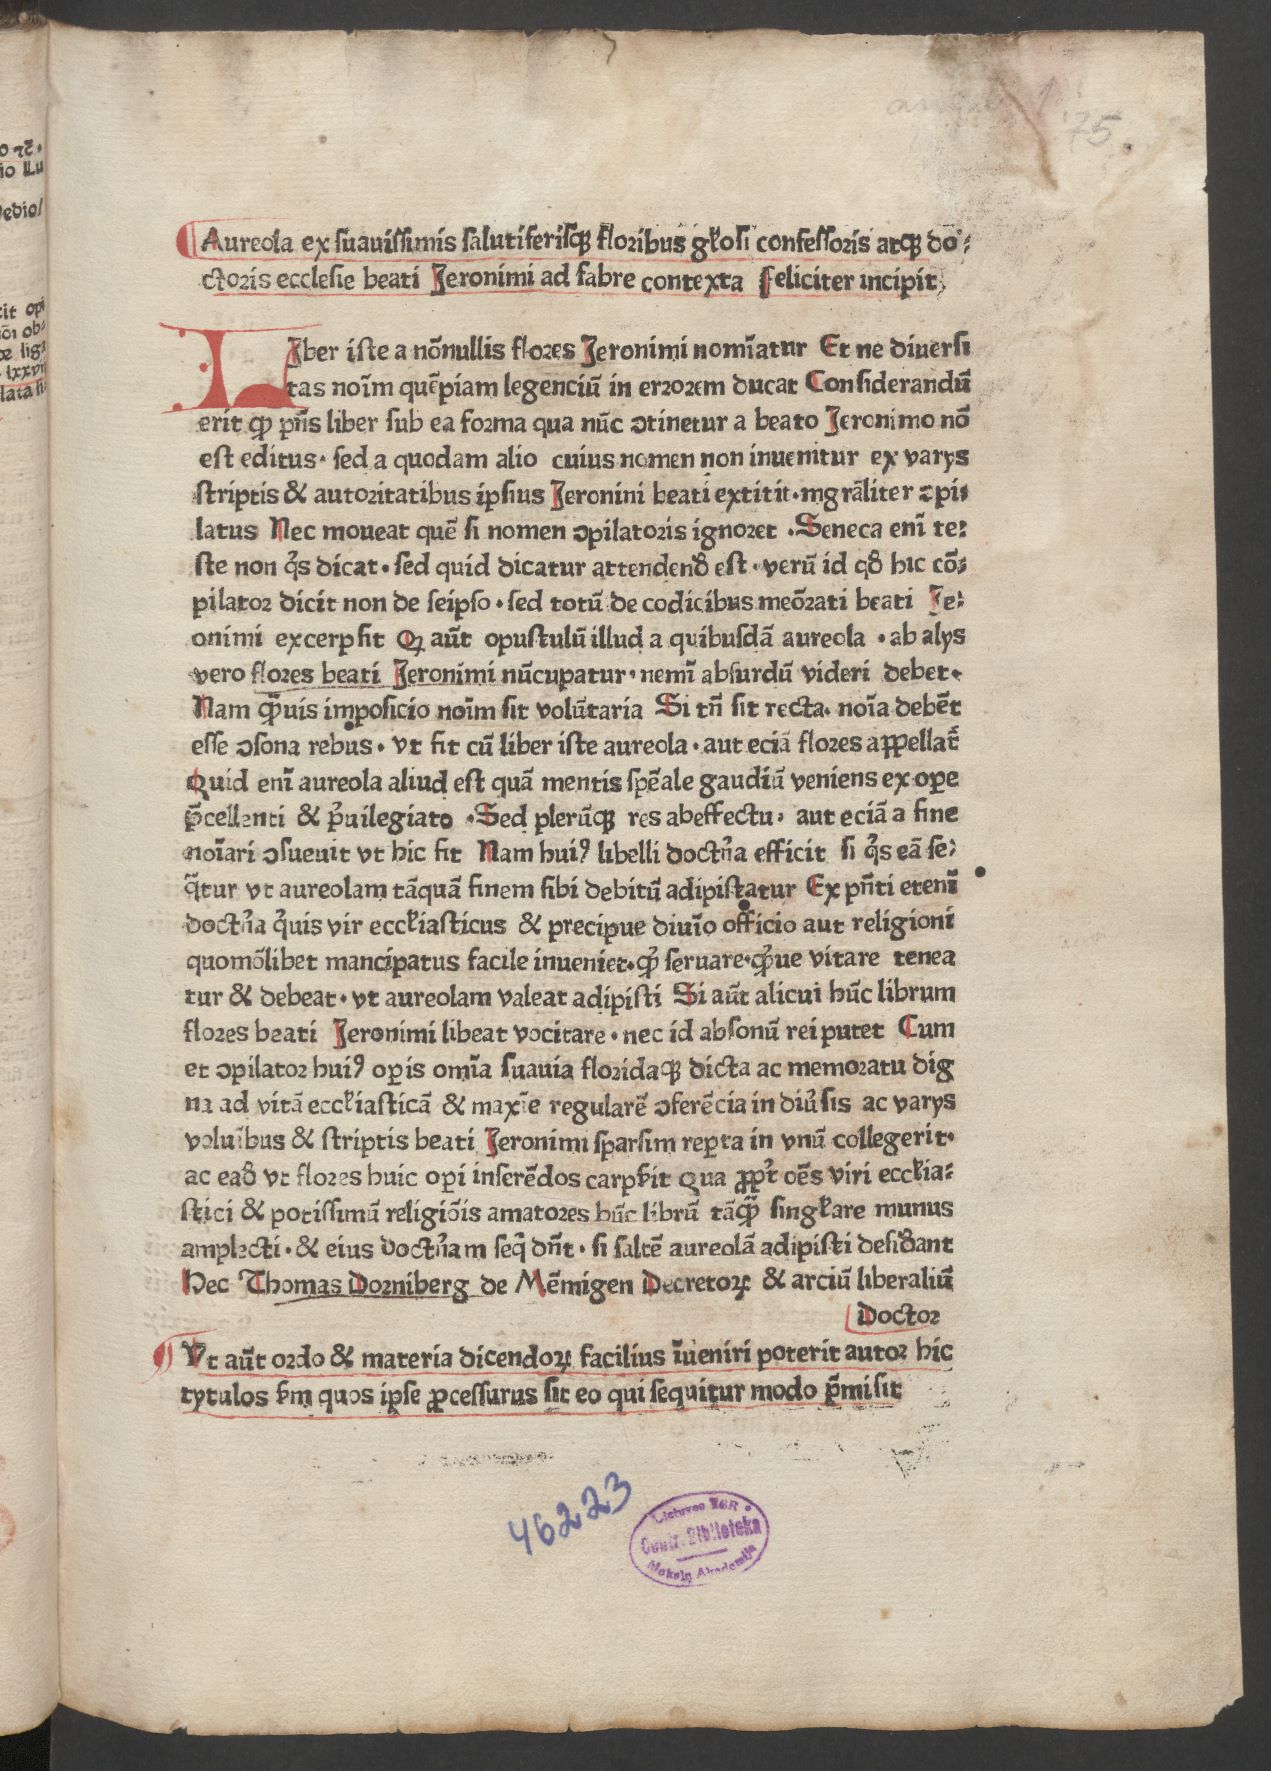 Aureola ex suauissimis salutiferisqꝫ floribus gl̄osi confessoris atqꝫ do⸗
ctoris ecclesie beati Jeronimi ad fabre contexta feliciter incipit
LIber iste a nōnullis flores Jeronimi nomīatur Et ne diuersi
tas noīm quēpiam legenciū in errorem ducat Considerandū
erit ꝙ pn̄s liber sub ea forma qua nūc ꝯtinetur a beato Jeronimo nō
est editus· sed a quodam alio cuius nomen non inuenitur ex varys
scriptis & autoritatibus ipsius Jeronini beati extitit· mgrāliter ꝯpi⸗
latus Nec moueat quē si nomen ꝯpilatoris ignoret ·Seneca enī te⸗
ste non qͥs dicat· sed quid dicatur attendendū est· verū id qd̄ hic cō⸗
pilator dicit non de seipso· sed totū de codicibus meōrati beati Je⸗
onimi excerpsit Q aūt opusculū illud a quibusdā aureola ·ab alys
vero flores beati Jeronimi nūcupatur· nemī absurdū videri debet·
Nam ꝙ̄uis imposicio noīm sit volūtaria Si tn̄ sit recta· noīa debēt
esse ꝯsona rebus· vt sit cū liber iste aureola· aut eciā flores appellat᷑
Quid enī aureola aliud est quā mentis spēale gaudiū veniens ex oꝑe
p̄cellenti & pͥuilegiato ·Sed plerūqꝫ res ab effectu· aut eciā a fine
noīari ꝯsueuit vt hic fit Nam huiꝰ libelli doctͥna efficit si qͥs eā se⸗
q̄tur vt aureolam tāquā finem sibi debitū adipiscatur Ex pn̄ti etenī
doctͥna qͥuis vir eccl̄iasticus & precipue diuīo officio aut religioni
quomōlibet mancipatus facile inueniet· qͥd seruare· qͥdue vitare tenea
tur & debeat· vt aureolam valeat adipisci Si aūt alicui hūc librum
flores beati Jeronimi libeat vocitare· nec id absonū rei putet Cum
et ꝯpilator huiꝰ oꝑis omīa suauia floridaqꝫ dicta ac memoratu dig
na ad vitā eccl̄iasticā & maxīe regularē ꝯferēcia in diūsis ac varys
voluībus & scriptis beati Jeronimi sparsim reꝑta in vnū collegerit·
ac ead̄ vt flores huic oꝑi inserēdos carps̄it Qua ꝓpt᷑ oēs viri eccl̄ia⸗
stici & potissimū religiōis amatores hūc librū tāꝙ̄ singl̄are munus
amplecti· & eius doctͥnam seq̄ dn̄t· si saltē aureolā adipisci desid̄ant
Hec Thomas Dorniberg de Mēmigen Decretoꝝ & arciū liberaliū
Doctor
Vt aūt ordo & materia dicendoꝝ facilius īueniri poterit autor hic
tytulos sm̄ quos ipse ꝓcessurus sit eo qui sequitur modo p̄misit
75.
46223
Lietuvos TSR
Centr. Biblioteka
Mokslų Akademija